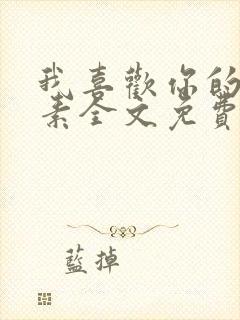 我喜歡你的
素全文免費
藍掉